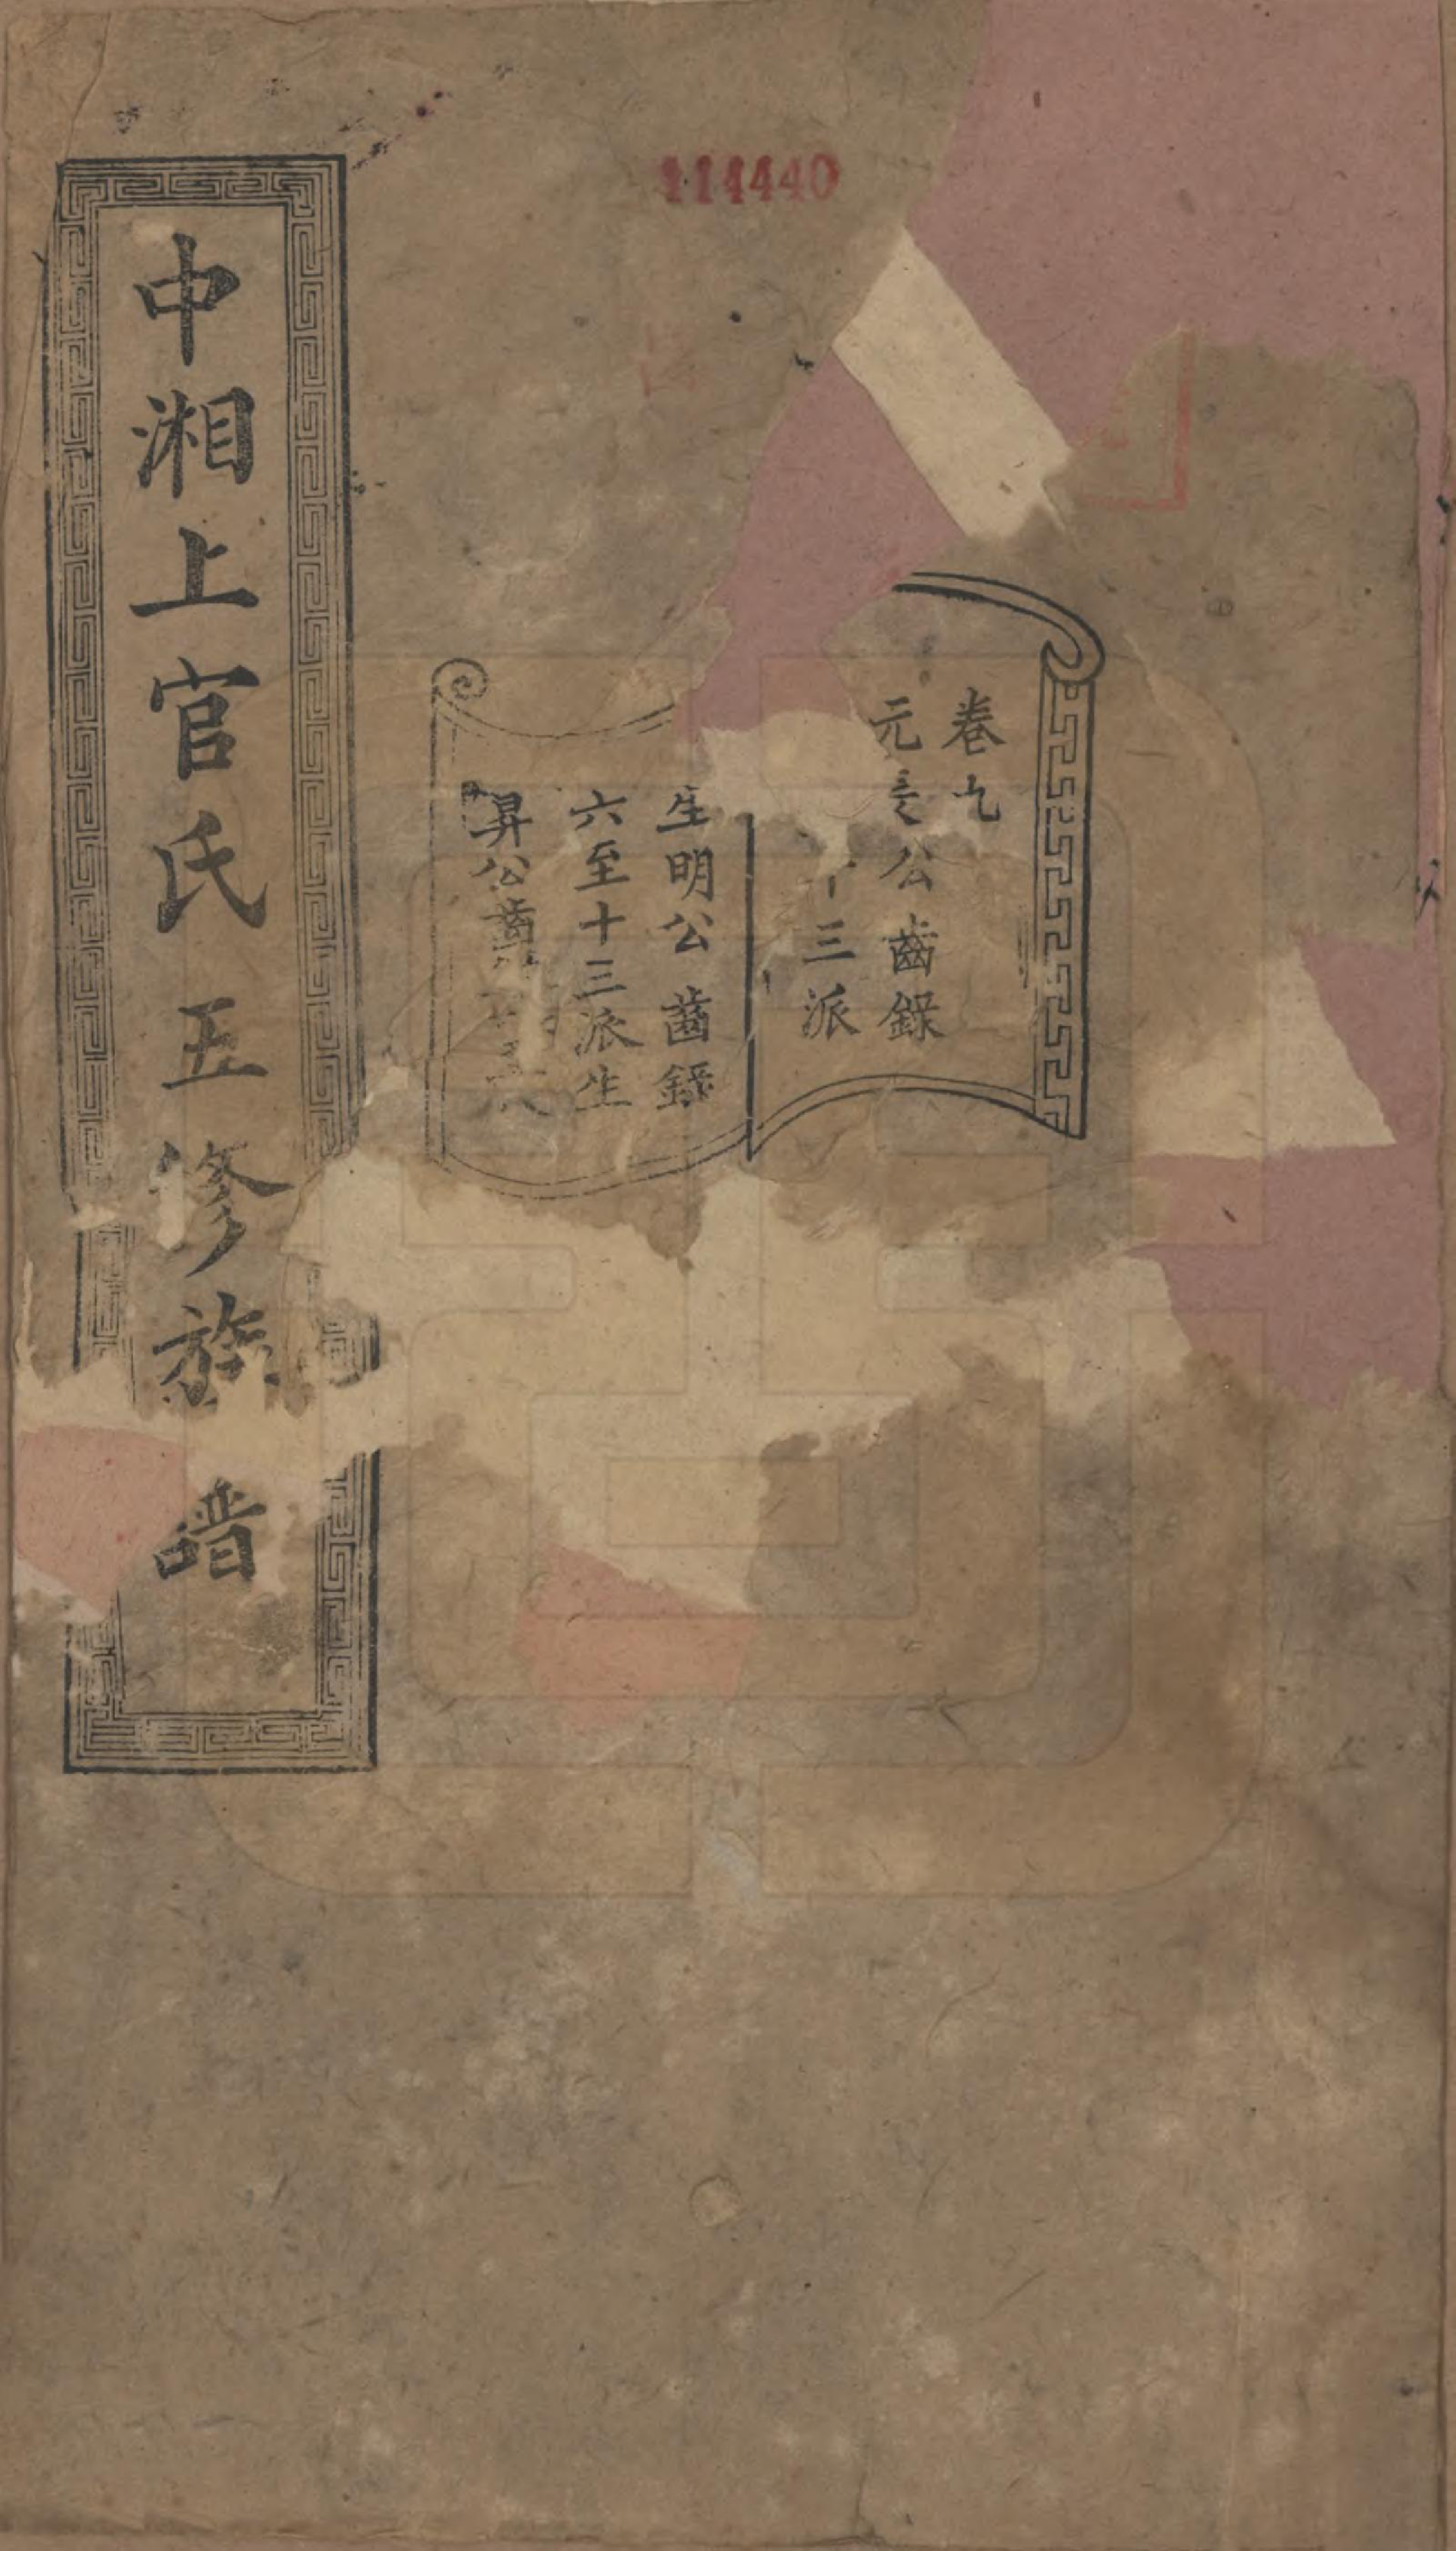 114440
卷九
元公齒錄
十三派
生明公齒錄
六至十三派生
昇公齒
中湘上官氏五修族譜